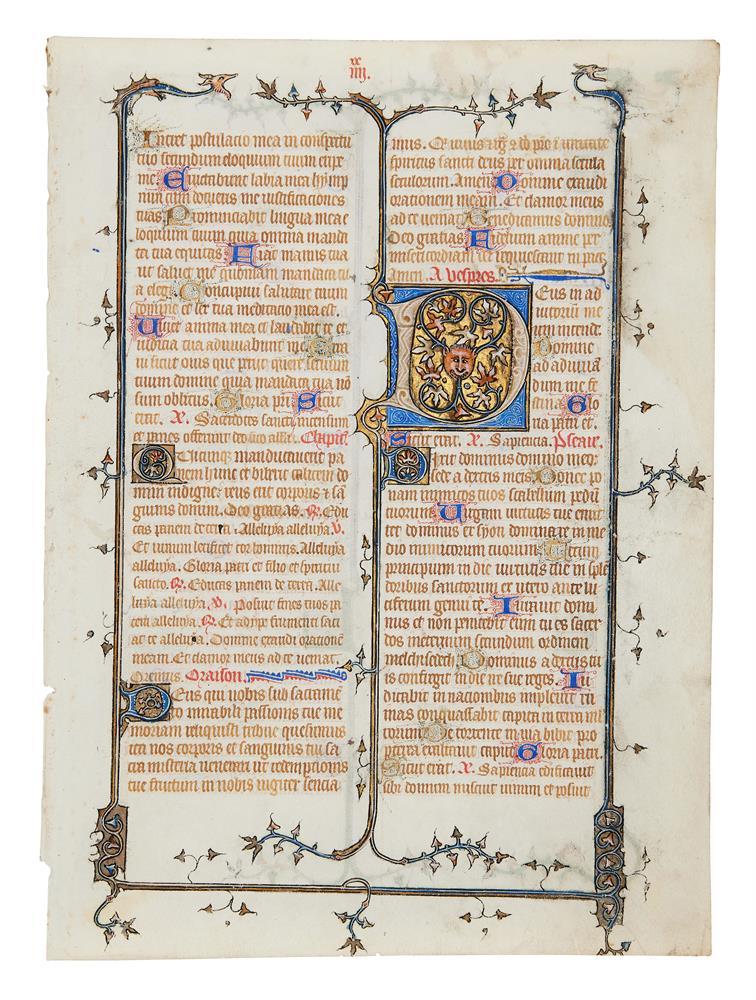 xx
iiij.
Intret postulacio mea in conspectu
tuo secundum eloquium tuum eripe
me Eructabunt labia mea hymp
num cum docueris me iustificaciones
tuas Pronunciabit lingua mea e
loquium tuum quia omnia manda
ta tua equitas Fiat manus tua
ut saluet me quoniam mandata tu
a elegi Concupiui salutare tuum
domine et lex tua meditacio mea est.
Uiuet anima mea et laudabit te et
iudicia tua adiuuabunt me Erra
ui sicut ouis que periit quere seruum
tuum domine quia mandata tua nō
sum oblitus. Gloria patri Sicut
erat. A. Sacerdotes sancti incensum
et panes offerunt deo alle. Chapit'.
Quicumque manducauerit pa
nem hunc et biberit calicem do
mini indigne reus erit corporis & sā
guinis domini. Deo gratias. R. Edu
cas panem de terra. Alleluya alleluya V.
Et uinum letificet cor hominis. Alleluya
alleluya. Gloria patri et filio et spiritui
sancto. R. Educas panem de terra. Alle
luya alleluya. V. Posuit fines tuos pa
cem alleluya. R. Et adype frumenti saci
at te alleluya. Domine exaudi orationē
meam. Et clamor meus ad te ueniat.
Oremus. Oraison.
Deus qui nobis sub sacrame
to mirabili passionis tue me
moriam reliquisti tribue quesumus
ita nos corporis et sanguinis tui sa
cra misteria uenerari ut redemptionis
tue fructum in nobis iugiter sencia
mus. Qui uiuis
spiritus sancti deus per omnia secula
seculorum. Amen Domine exaudi
orationem meam. Et clamor meus
ad te ueniat Benedicamus domino
Deo gratias Fidelium anime per
misericordiam dei requiescant in pace
Amen. A Vespres.
Deus in ad
iutorium me
um intende.
Domine
ad adiuuā
dum me fe
stina Glo
ria patri et.
Sicut erat. A. Sapiencia. Pseaue.
Dixit dominus domino meo
sede a dextris meis. Donec po
nam inimicos tuos scabellum pedū
tuorum Uirgam uirtutis tue emit
tet dominus ex syon dominare in me
dio inimicorum tuorum Tecum
principium in die uirtutis tue in splē
doribus sanctorum ex utero ante lu
ciferum genui te. Iurauit domi
nus et non penitebit eum tu es sacer
dos in eternum secundum ordinem
melchisedech Dominus a dextris tu
is confregit in die ire sue reges. Iu
dicabit in nacionibus impleuit ru
inas conquassabit capita in terra mł
torum De torrente in uia bibit pro
pterea exaltauit caput Gloria patri.
Sicut erat. A. Sapiencia edificauit
sibi domum miscuit uinum et posuit